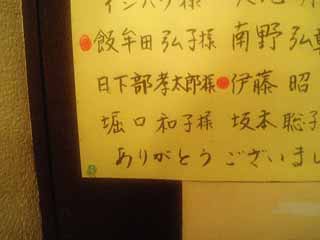 飯牟田弘子様 南野弘
日下部孝太郎様 伊藤 昭
堀口和子様 坂本聡子
ありがとうございまし